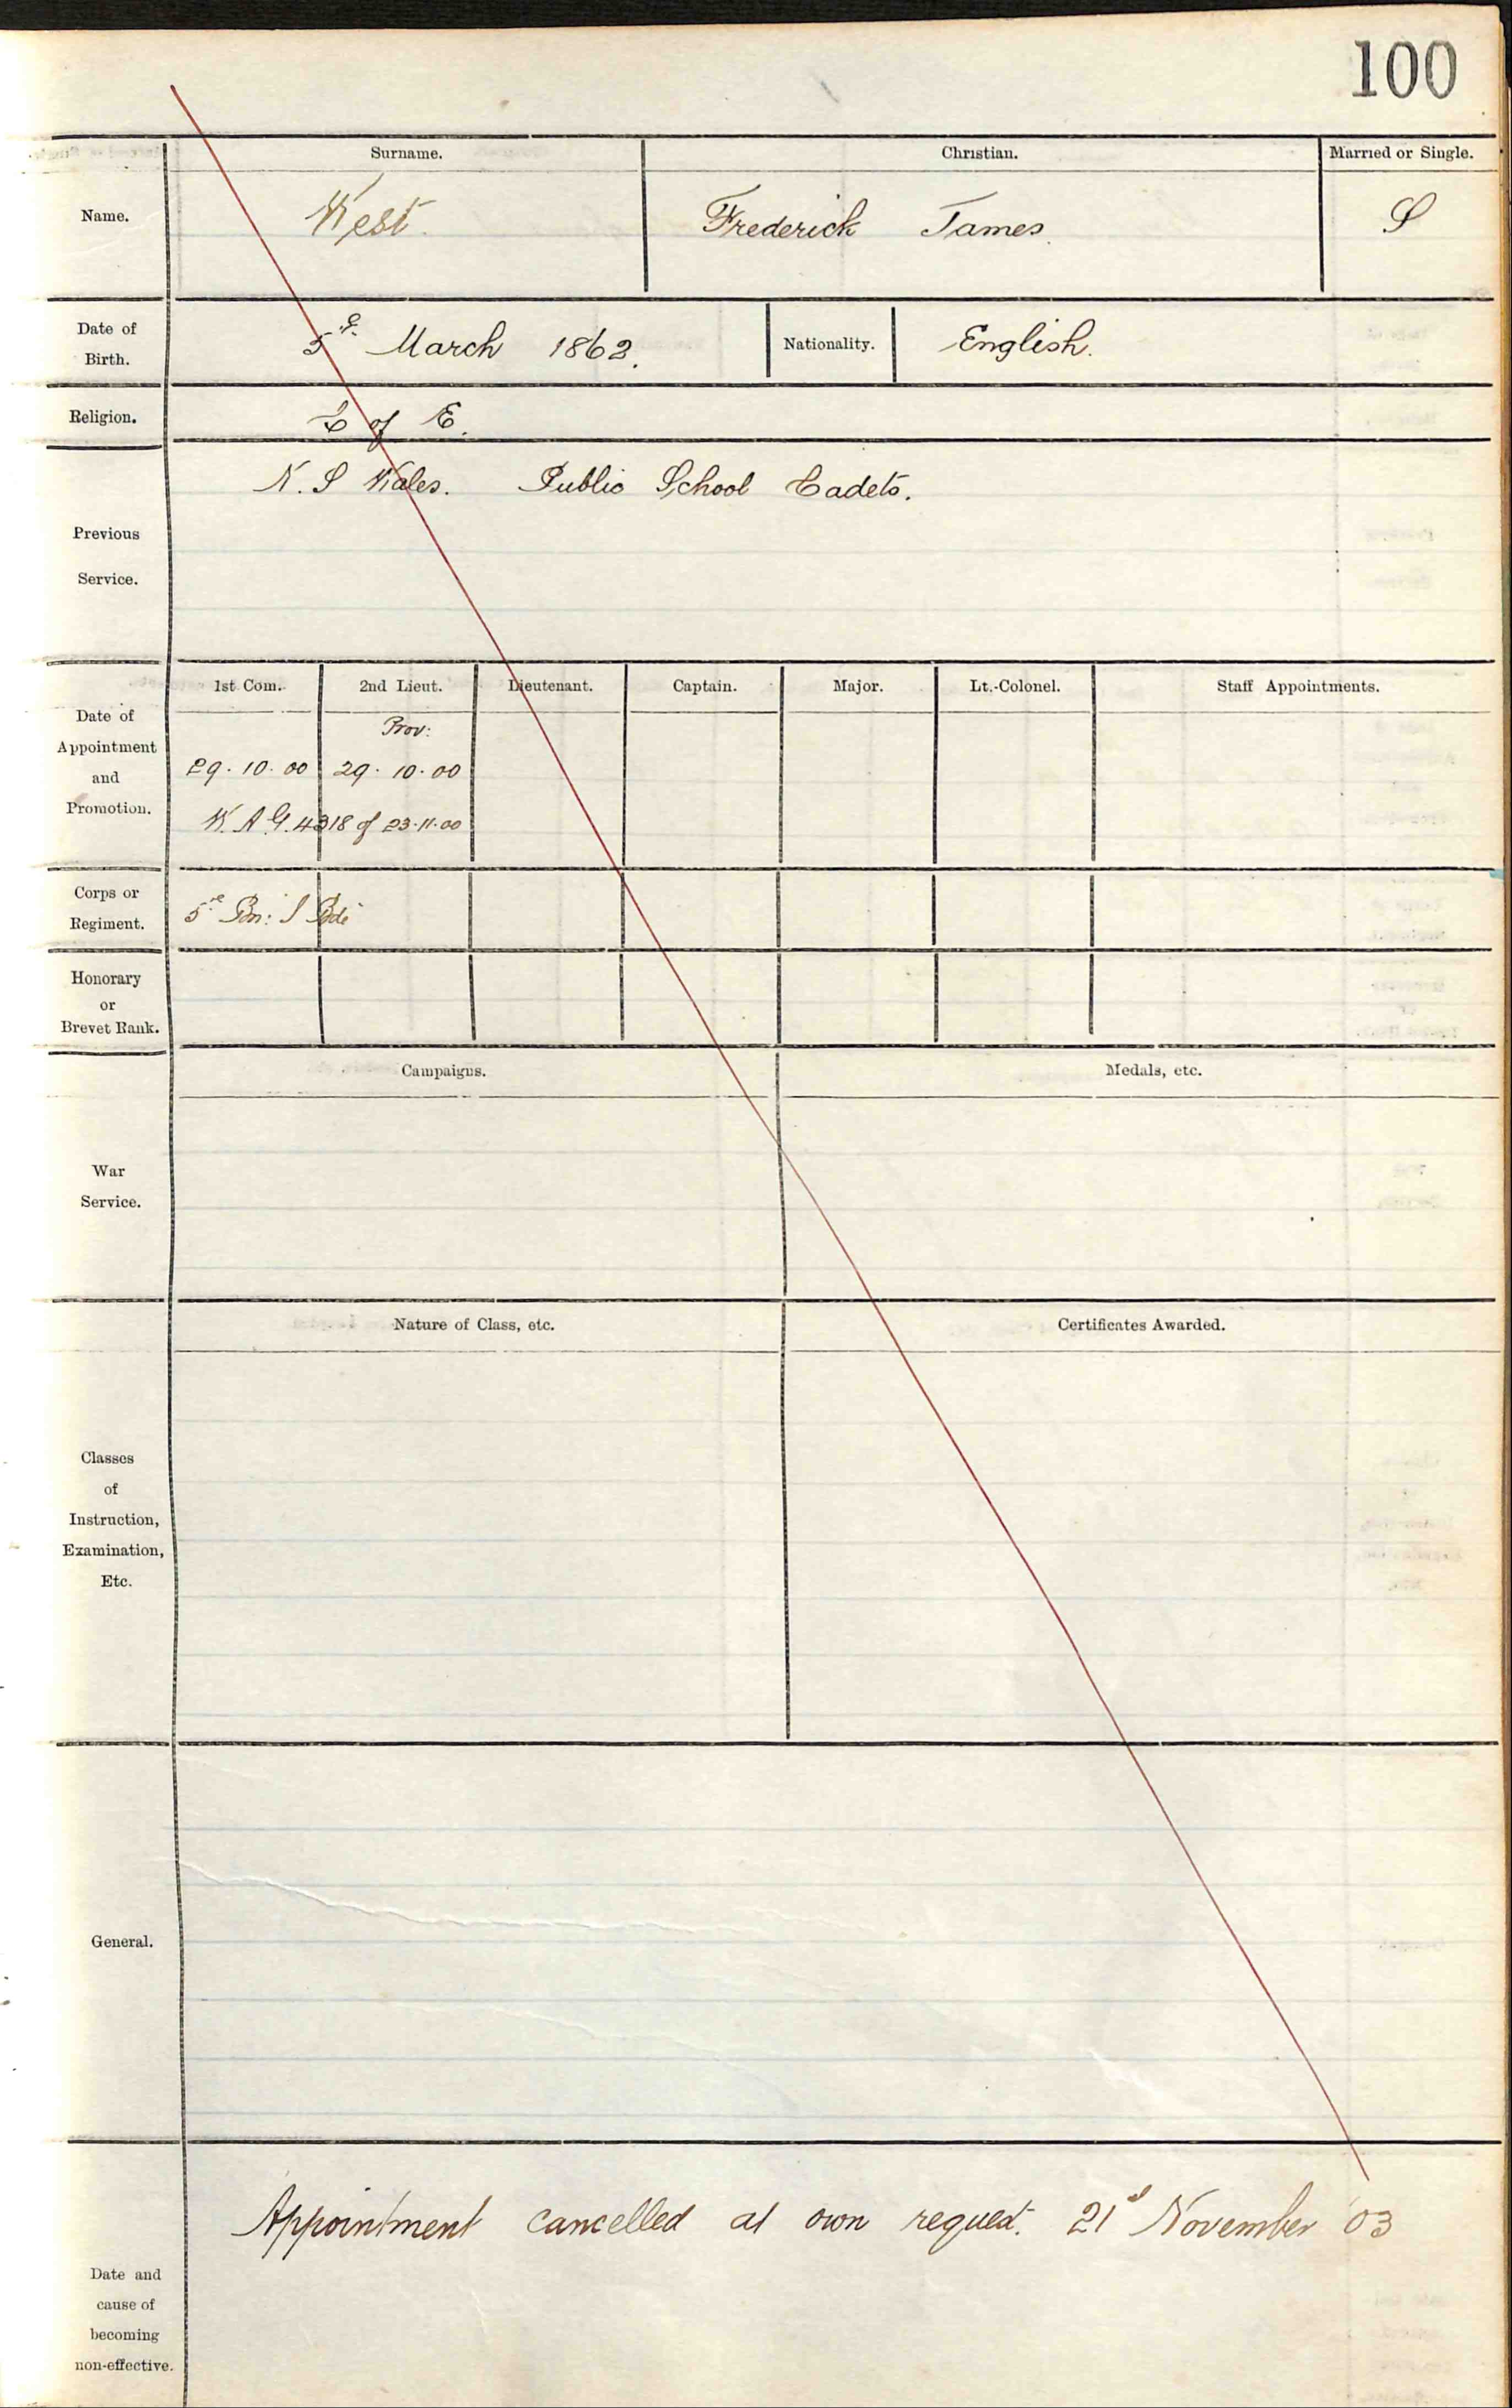 100
Surname. Christian. Married or Single.
Name. West. Frederick James. S
Date of Birth. 5th March 1862. Nationality. English.
Religion. C of E.
N. S Wales. Public School Cadets.
Previous
Service.
1st Com. 2nd Lieut. Lieutenant. Captain. Major. Lt.-Colonel. Staff Appointments.
Date of Appointment and Promotion.
Prov:
29. 10. 00 29. 10. 00
W. A G. 4318 of 23.11.00
Corps or Regiment. 5th Bn: I Bde
Honorary
or
Brevet Rank.
Campaigns. Medals, etc.
War
Service.
Nature of Class, etc. Certificates Awarded.
Classes
of
Instruction,
Examination,
Etc.
General.
Appointment cancelled at own request. 21st November '03
Date and
cause of
becoming
non-effective.